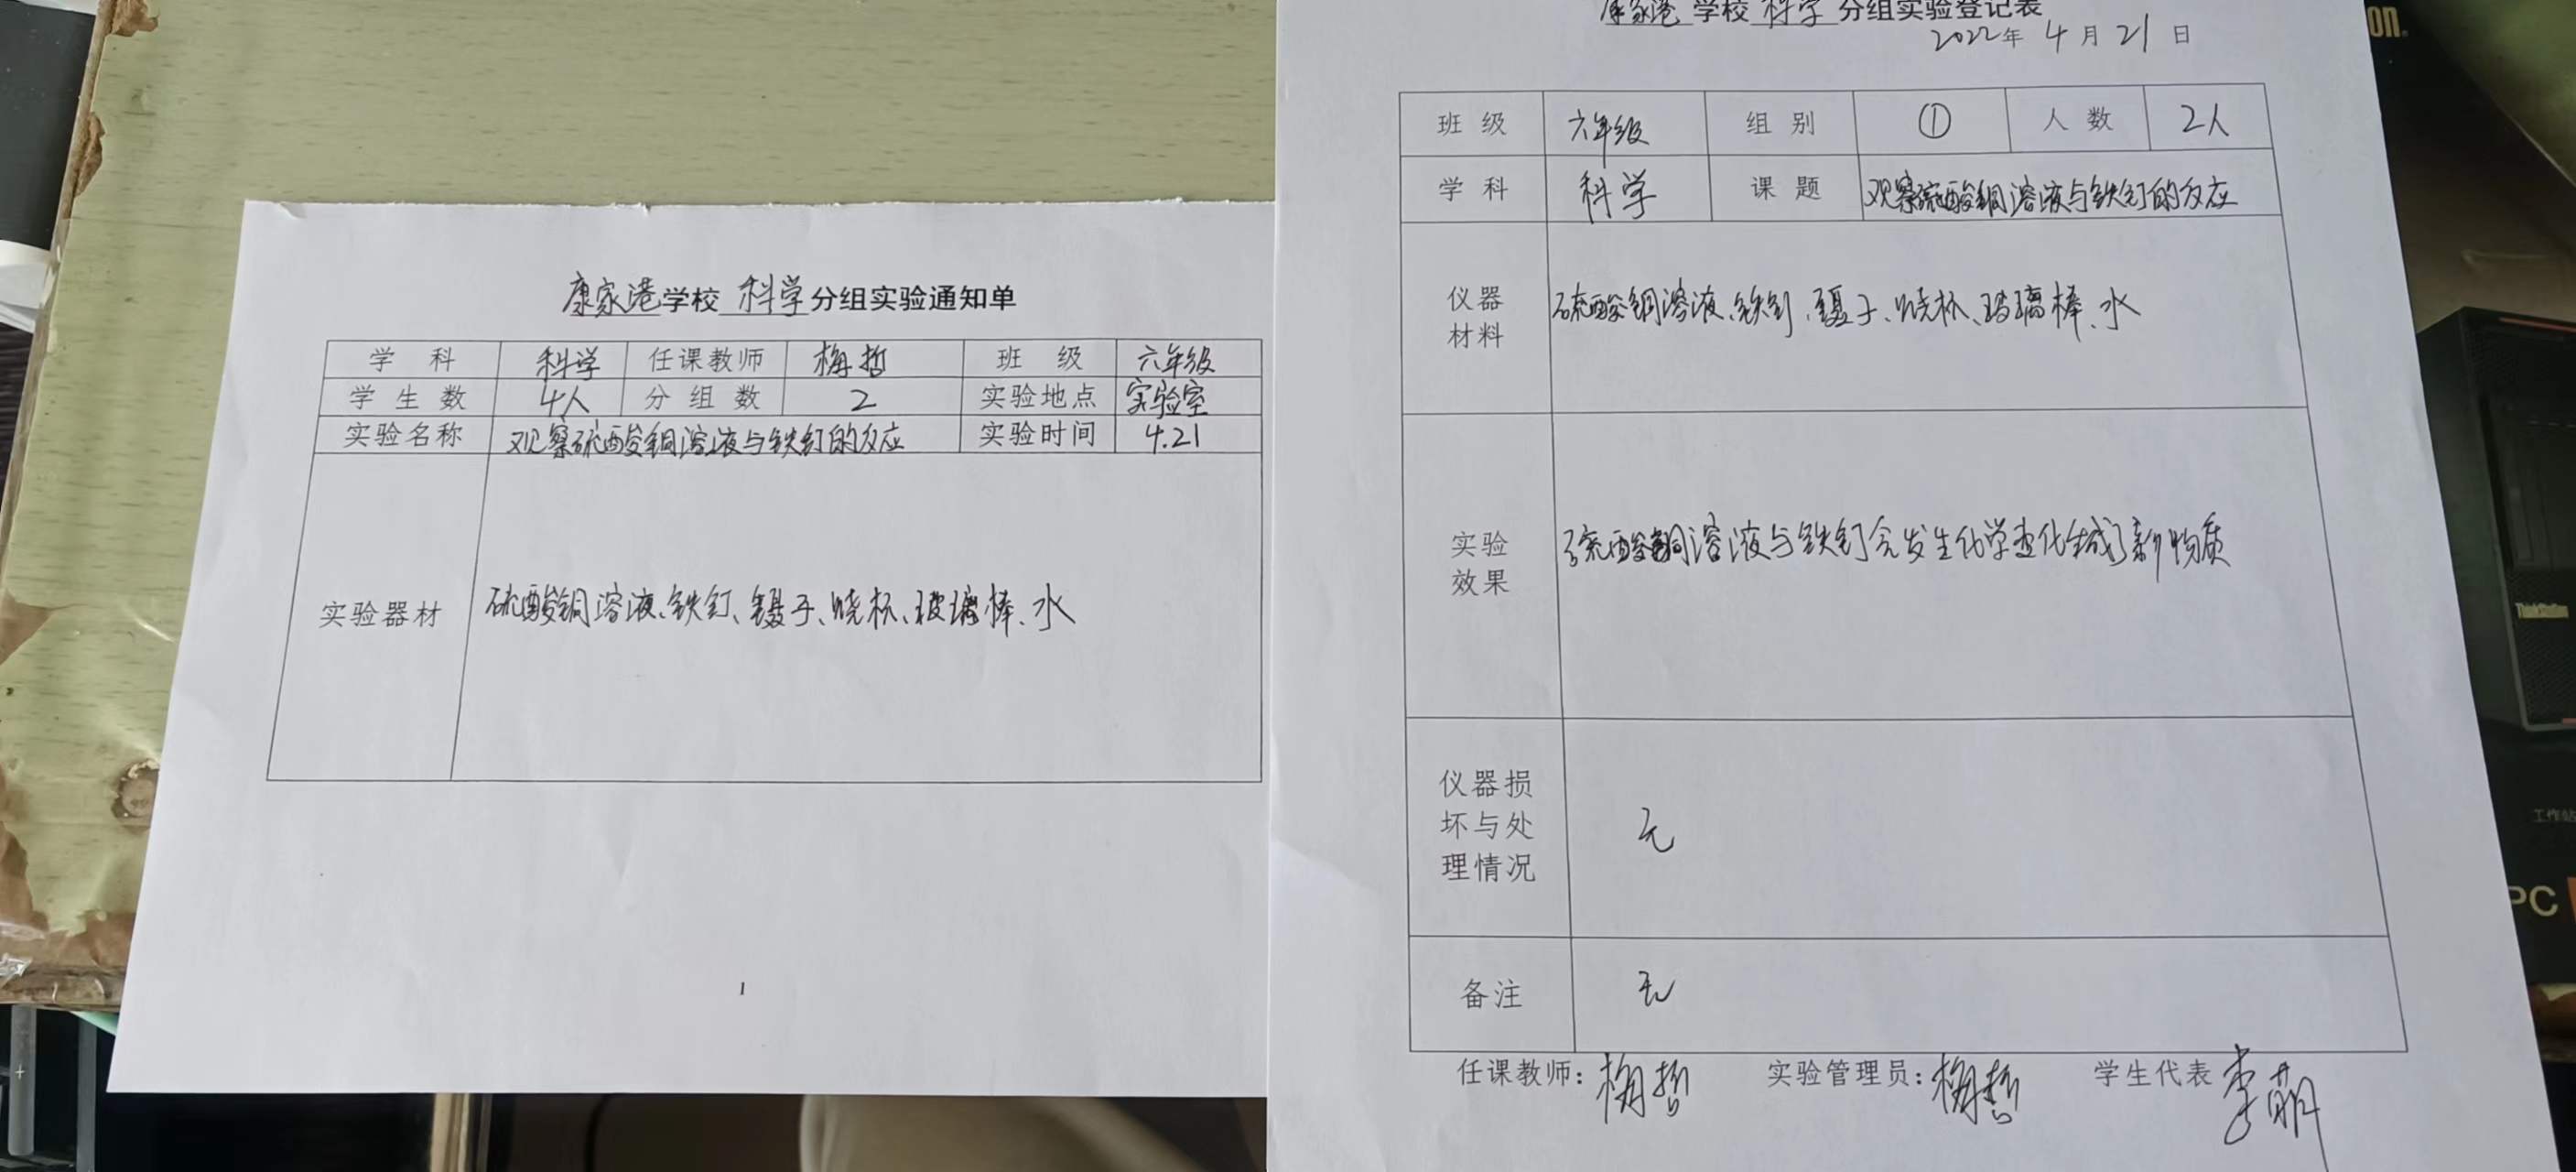 康家港学校 科学 分组实验通知单
学 科 科学 任课教师 梅哲 班 级 六年级
学 生 数 4人 分 组 数 2 实验地点 实验室
实验名称 观察硫酸铜溶液与铁钉的反应 实验时间 4.21
实验器材 硫酸铜溶液、铁钉、镊子、烧杯、玻璃棒、水
1
康家港 学校 科学 分组实验登记表
2022年 4 月 21 日
班 级 六年级 组 别 ① 人 数 2人
学 科 科学 课 题 观察硫酸铜溶液与铁钉的反应
仪器
材料
硫酸铜溶液、铁钉、镊子、烧杯、玻璃棒、水
实验
效果
硫酸铜溶液与铁钉会发生化学变化生成了新物质
仪器损
坏与处
理情况
无
备注 无
任课教师：梅哲 实验管理员：梅哲 学生代表 李萌
on.
ThinkStation
工作站
PC